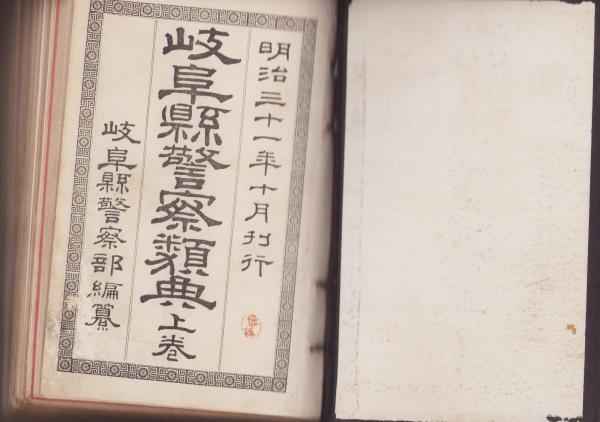 明治三十一年十月刊行
岐阜縣警察類典上卷
岐阜縣警察部編纂